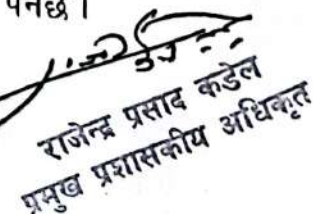 पर्नेछ ।
राजेन्द्र प्रसाद कडेल
प्रमुख प्रशासकीय अधिकृत